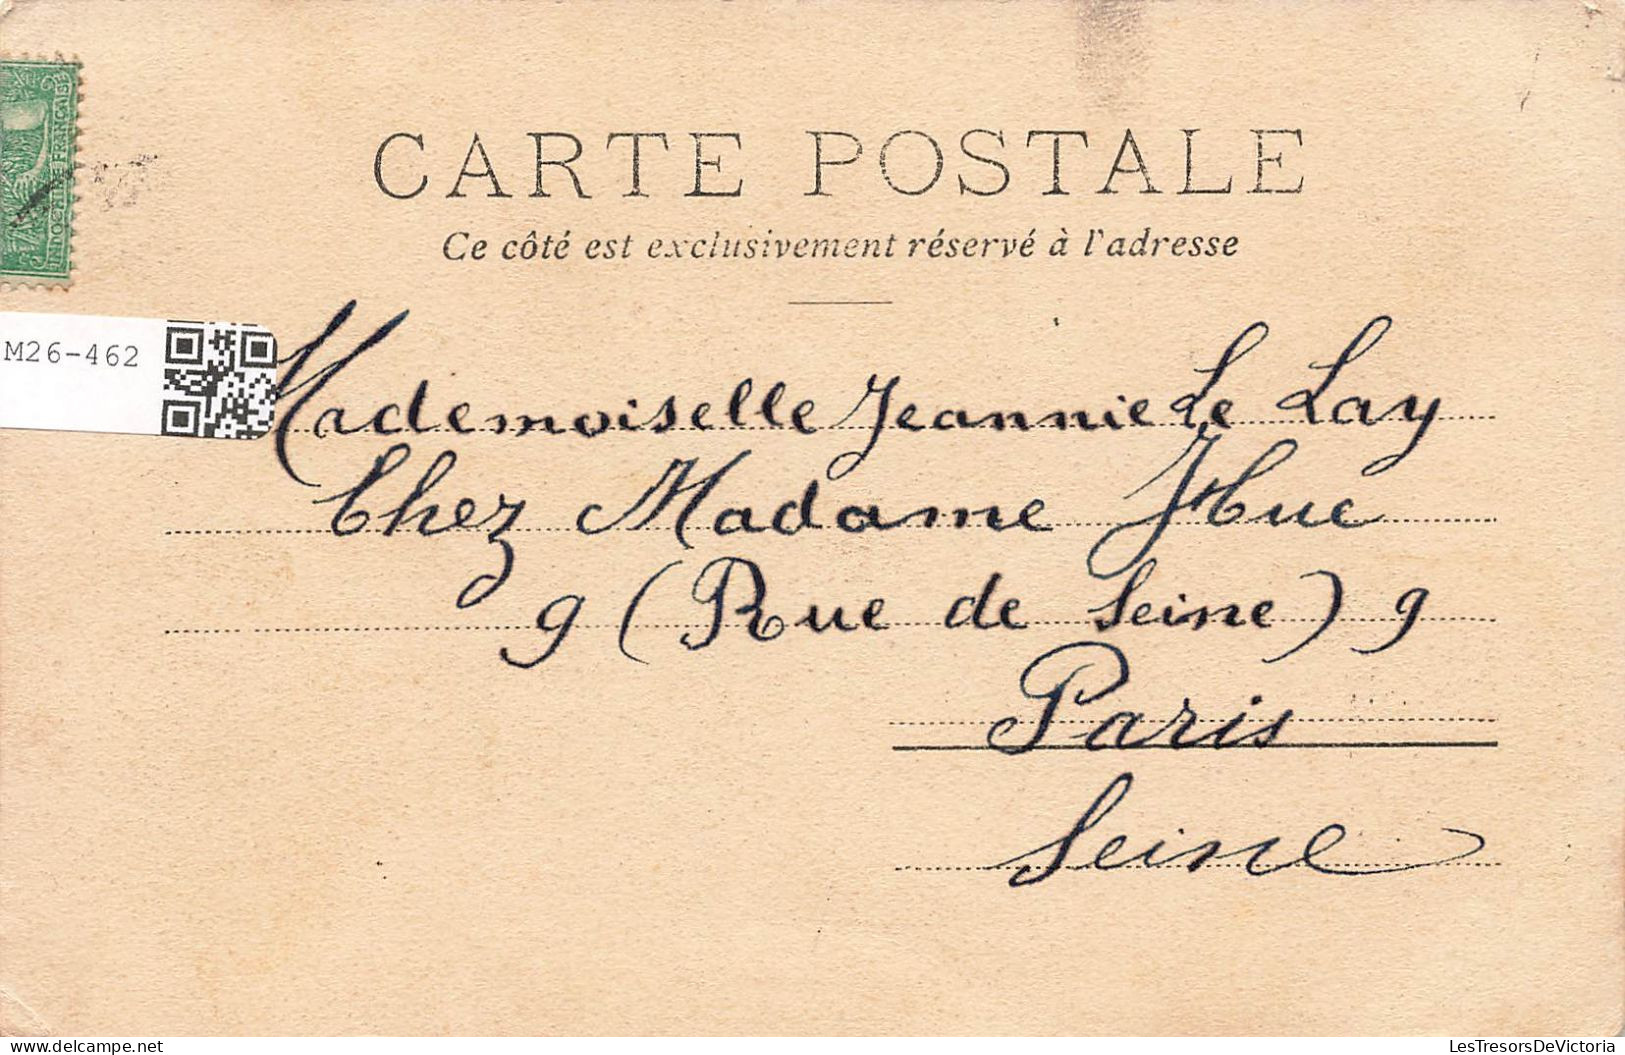 INDOCHINE FRANÇAISE
CARTE POSTALE
Ce côté est exclusivement réservé à l'adresse
M26-462
Mademoiselle Jeannie Le Lay
Chez Madame Hue
9 (Rue de Seine) 9
Paris
Seine
delcampe.net
LesTresorsDeVictoria